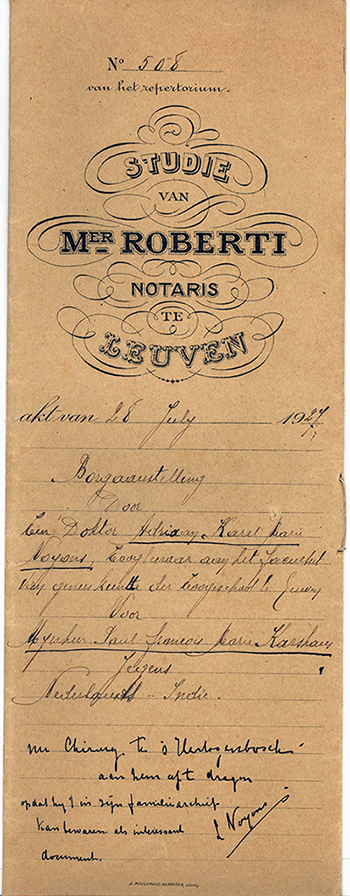 Nº 508
van het repertorium.
STUDIE
VAN
MER ROBERTI
NOTARIS
TE
LEUVEN
akt van 28 July 1927
Borgaanstelling
Door
Den Doktor Adriaan Karel Marie
Noyons, Hoogleeraar aan het Faculteit
van geneeskunde der Hoogeschool te Leuven
Voor
Mynheer Paul François Marie
Jegens
Nederlandsch-Indie.
nu Chirurg te 's Hertogenbosch
aan hem af te dragen
opdat hy 't in zijn familiearchief
kan bewaren als interessant
document.
Noyons